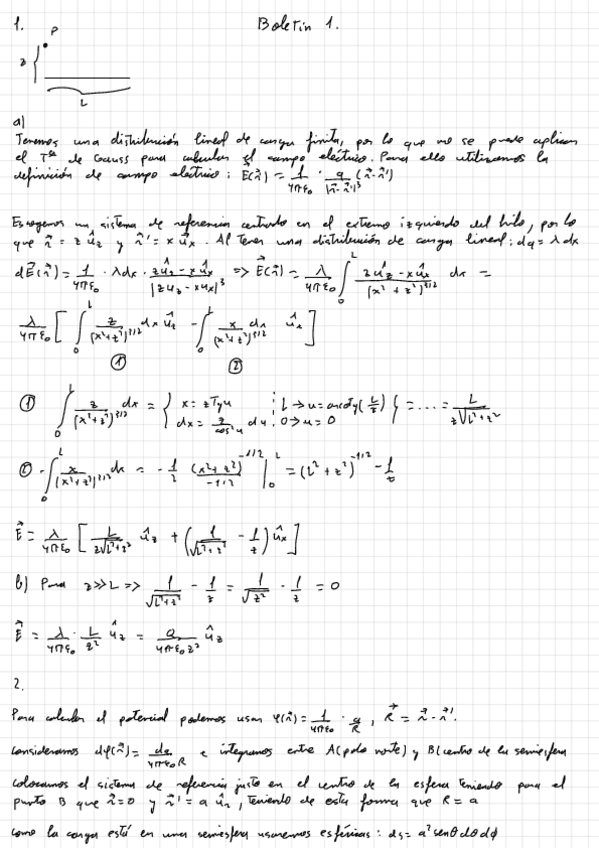 1.
P
Boletín 1.
z
L
a)
Tenemos una distribución lineal de carga finita, por lo que no se puede aplicar
el Tᵐᵃ de Gauss para calcular el campo eléctrico. Para ello utilizamos la
definición de campo eléctrico: E⃗(r⃗) = 1/(4πε₀) · q/|r⃗-r⃗'|³ (r⃗-r⃗')
Escogemos un sistema de referencia centrado en el extremo izquierdo del hilo, por lo
que r⃗ = z û_z y r⃗' = x û_x. Al tener una distribución de carga lineal: dq = λ dx
dE⃗(r⃗) = 1/(4πε₀) · λdx · (zû_z - xû_x)/|zu_z - xu_x|³ => E⃗(r⃗) = λ/(4πε₀) ∫₀ᴸ (zû_z - xû_x)/(x²+z²)^(3/2) dx =
λ/(4πε₀) [ ∫₀ᴸ z/(x²+z²)^(3/2) dx û_z - ∫₀ᴸ x/(x²+z²)^(3/2) dx û_x ]
① ②
① ∫₀ᴸ z/(x²+z²)^(3/2) dx = { x = z Tg u ; dx = z/cos²u du ; L → u = arctg(L/z) ; 0 → u = 0 } = .... = L/(z√(L²+z²))
② -∫₀ᴸ x/(x²+z²)^(3/2) dx = -1/2 (x²+z²)^(-1/2)/(-1/2) |₀ᴸ = (L²+z²)^(-1/2) - 1/z
E⃗ = λ/(4πε₀) [ L/(z√(L²+z²)) û_z + (1/√(L²+z²) - 1/z) û_x ]
b) Para z>>L => 1/√(L²+z²) - 1/z = 1/√z² · 1/z = 0
E⃗ = λ/(4πε₀) · L/z² û_z = Q/(4πε₀z²) û_z
2.
Para calcular el potencial podemos usar φ(r⃗) = 1/(4πε₀) · q/R, R⃗ = r⃗ - r⃗'.
Consideramos dφ(r⃗) = dq/(4πε₀R) e integramos entre A(polo norte) y B(centro de la semiesfera
Colocamos el sistema de referencia justo en el centro de la esfera teniendo para el
punto B que r⃗=0 y r⃗' = a û_r, teniendo de esta forma que R = a
Como la carga está en una semiesfera usaremos esféricas: ds = a² senθ dθ dϕ